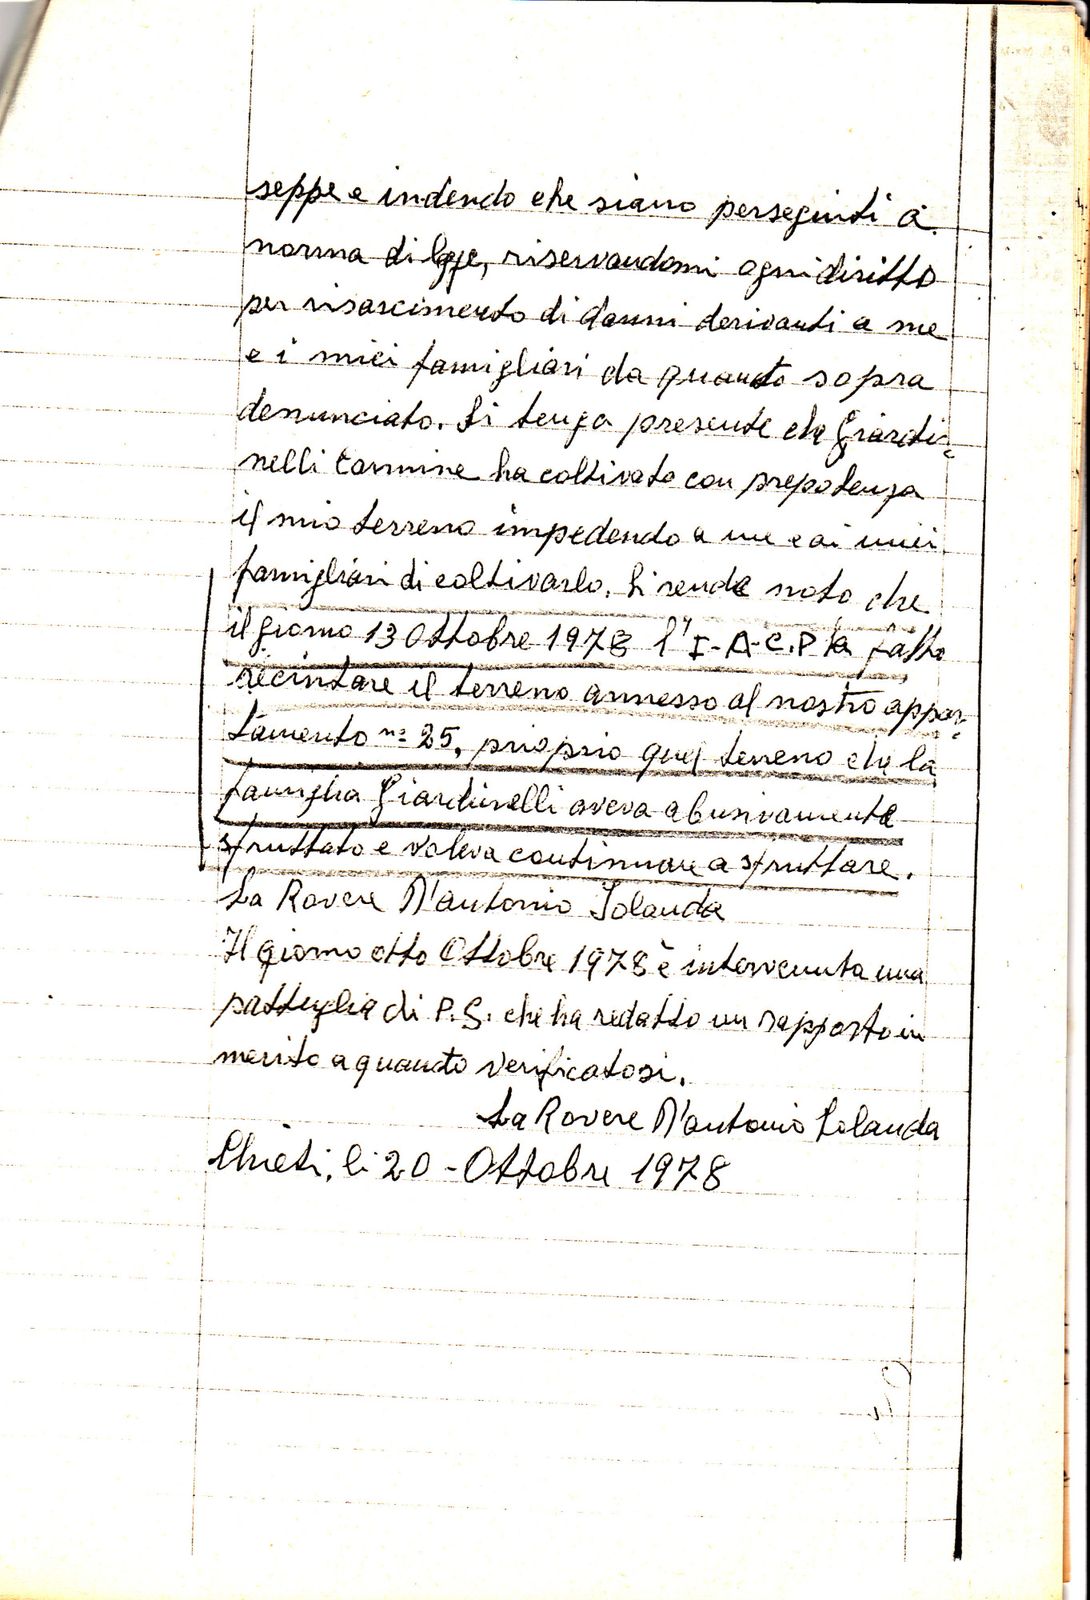 seppe e indendo che siano perseguiti a
norma di legge, riservandomi ogni diritto
per risarcimento di danni derivanti a me
e i miei famigliari da quanto sopra
denunciato. Si tenga presente che Giardi=
nelli Carmine ha coltivato con prepotenza
il mio terreno impedendo a me e ai miei
famigliari di coltivarlo. Si rende noto che
il giorno 13 Ottobre 1978 l'I-A-C.P ha fatto
recintare il terreno annesso al nostro appar=
tamento n= 25, proprio quel terreno che la
famiglia Giardinelli aveva abusivamente
sfruttato e voleva continuare a sfruttare.
La Rovere D'antonio Iolanda
Il giorno otto Ottobre 1978 è intervenuta una
pattuglia di P.S. che ha redatto un rapporto in
merito a quanto verificatosi.
La Rovere D'antonio Iolanda
Chieti, li 20 - Ottobre 1978